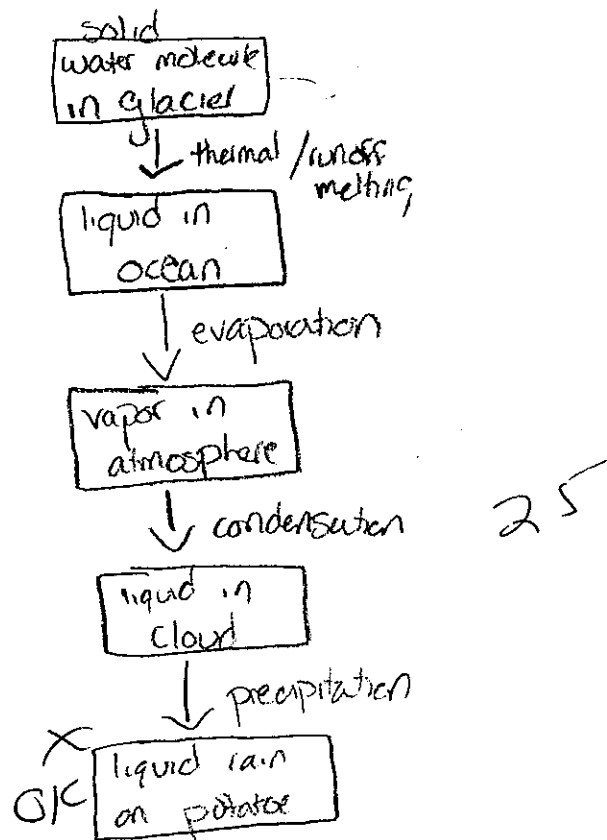 solid
water molecule
in glacier
thermal / runoff
melting
liquid in
ocean
evaporation
vapor in
atmosphere
condensation
25
liquid in
cloud
precipitation
X
OK
liquid rain
on potatoe